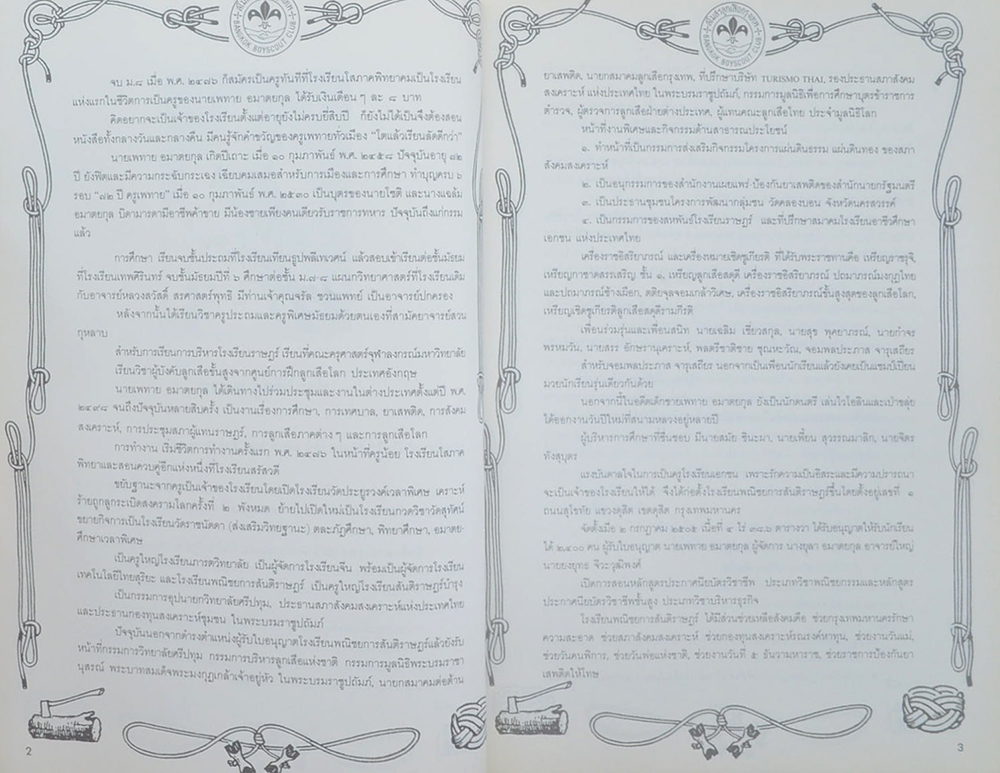 สโมสรลูกเสือกรุงเทพ
BANGKOK BOYSCOUT CLUB
จบ ม.๘ เมื่อ พ.ศ. ๒๔๗๖ ก็สมัครเป็นครูทันทีที่โรงเรียนโสภาคพิทยาคมเป็นโรงเรียน
แห่งแรกในชีวิตการเป็นครูของนายเพทาย อมาตยกุล ได้รับเงินเดือน ๆ ละ ๘ บาท
คิดอยากจะเป็นเจ้าของโรงเรียนตั้งแต่อายุยังไม่ครบยี่สิบปี ก็ยังไม่ได้เป็นจึงต้องสอน
หนังสือทั้งกลางวันและกลางคืน มีคนรู้จักคำขวัญของครูเพทายทั่วเมือง "ใดแล้วเรียนลัดดีกว่า"
นายเพทาย อมาตยกุล เกิดปีเถาะ เมื่อ ๑๐ กุมภาพันธ์ พ.ศ. ๒๔๕๘ ปัจจุบันอายุ ๗๒
ปี ยังฟิตและมีความกระฉับกระเฉง เฉียบคมเสมอสำหรับการเมืองและการศึกษา ทำบุญครบ ๖
รอบ "๗๒ ปี ครูเพทาย" เมื่อ ๑๐ กุมภาพันธ์ พ.ศ. ๒๕๓๐ เป็นบุตรของนายโชติ และนางแฉล้ม
อมาตยกุล บิดามารดามีอาชีพค้าขาย มีน้องชายเพียงคนเดียวรับราชการทหาร ปัจจุบันถึงแก่กรรม
แล้ว
การศึกษา เรียนจบชั้นประถมที่โรงเรียนเทียนธูปพลีเทเวศน์ แล้วสอบเข้าเรียนต่อชั้นมัธยม
ที่โรงเรียนเทพศิรินทร์ จบชั้นมัธยมปีที่ ๖ ศึกษาต่อชั้น ม.๗-๘ แผนกวิทยาศาสตร์ที่โรงเรียนเดิม
กับอาจารย์หลวงสวัสดิ์ สรศาสตร์พุทธิ มีท่านเจ้าคุณจรัล ชวนแพทย์ เป็นอาจารย์ปกครอง
หลังจากนั้นได้เรียนวิชาครูประถมและครูพิเศษมัธยมด้วยตนเองที่สามัคยาจารย์สวน
กุหลาบ
สำหรับการเรียนการบริหารโรงเรียนราษฎร์ เรียนที่คณะครุศาสตร์จุฬาลงกรณ์มหาวิทยาลัย
เรียนวิชาผู้บังคับลูกเสือขั้นสูงจากศูนย์การฝึกลูกเสือโลก ประเทศอังกฤษ
นายเพทาย อมาตยกุล ได้เดินทางไปร่วมประชุมและงานในต่างประเทศตั้งแต่ปี พ.ศ.
๒๔๙๘ จนถึงปัจจุบันหลายสิบครั้ง เป็นงานเรื่องการศึกษา, การเทศบาล, ยาเสพติด, การสังคม
สงเคราะห์, การประชุมสภาผู้แทนราษฎร์, การลูกเสือภาคต่าง ๆ และการลูกเสือโลก
การทำงาน เริ่มชีวิตการทำงานครั้งแรก พ.ศ. ๒๔๗๖ ในหน้าที่ครูน้อย โรงเรียนโสภาค
พิทยาและสอนควบคู่อีกแห่งหนึ่งที่โรงเรียนสรัสวดี
ขยับฐานะจากครูเป็นเจ้าของโรงเรียนโดยเปิดโรงเรียนวัดประยูรวงศ์เวลาพิเศษ เคราะห์
ร้ายถูกลูกระเบิดสงครามโลกครั้งที่ ๒ พังหมด ย้ายไปเปิดใหม่เป็นโรงเรียนกวดวิชาวัดสุทัศน์
ขยายกิจการเป็นโรงเรียนวัดราชนัดดา (ส่งเสริมวิทยฐานะ) ตละภัฎศึกษา, พิทยาศึกษา, อมาตย-
ศึกษาเวลาพิเศษ
เป็นครูใหญ่โรงเรียนภารตวิทยาลัย เป็นผู้จัดการโรงเรียนจีน พร้อมเป็นผู้จัดการโรงเรียน
เทคโนโลยีไทยสุริยะ และโรงเรียนพณิชยการสันติราษฎร์ เป็นครูใหญ่โรงเรียนสันติราษฎร์บำรุง
เป็นกรรมการอุปนายกวิทยาลัยศรีปทุม, ประธานสภาสังคมสงเคราะห์แห่งประเทศไทย
และประธานกองทุนสงเคราะห์ชุมชน ในพระบรมราชูปถัมภ์
ปัจจุบันนอกจากดำรงตำแหน่งผู้รับใบอนุญาตโรงเรียนพณิชยการสันติราษฎร์แล้วยังรับ
หน้าที่กรรมการวิทยาลัยศรีปทุม กรรมการบริหารลูกเสือแห่งชาติ กรรมการมูลนิธิพระบรมราชา
นุสรณ์ พระบาทสมเด็จพระมงกุฎเกล้าเจ้าอยู่หัว ในพระบรมราชูปถัมภ์, นายกสมาคมต่อต้าน
2
สโมสรลูกเสือกรุงเทพ
BANGKOK BOYSCOUT CLUB
ยาเสพติด, นายกสมาคมลูกเสือกรุงเทพ, ที่ปรึกษาบริษัท TURISMO THAI, รองประธานสภาสังคม
สงเคราะห์ แห่งประเทศไทย ในพระบรมราชูปถัมภ์, กรรมการมูลนิธิเพื่อการศึกษาบุตรข้าราชการ
ตำรวจ, ผู้ตรวจการลูกเสือฝ่ายต่างประเทศ, ผู้แทนคณะลูกเสือไทย ประจำมูลนิธิโลก
หน้าที่งานพิเศษและกิจกรรมด้านสาธารณประโยชน์
๑. ทำหน้าที่เป็นกรรมการส่งเสริมกิจกรรมโครงการแผ่นดินธรรม แผ่นดินทอง ของสภา
สังคมสงเคราะห์
๒. เป็นอนุกรรมการของสำนักงานเผยแพร่-ป้องกันยาเสพติดของสำนักนายกรัฐมนตรี
๓. เป็นประธานชุมชนโครงการพัฒนากลุ่มชน วัดคลองบอน จังหวัดนครสวรรค์
๔. เป็นกรรมการของสหพันธ์โรงเรียนราษฎร์ และที่ปรึกษาสมาคมโรงเรียนอาชีวศึกษา
เอกชน แห่งประเทศไทย
เครื่องราชอิสริยาภรณ์ และเครื่องหมายเชิดชูเกียรติ ที่ได้รับพระราชทานคือ เหรียญราชรุจิ,
เหรียญกาชาดสรรเสริญ ชั้น ๑, เหรียญลูกเสือสดุดี เครื่องราชอิสริยาภรณ์ ปถมาภรณ์มงกุฎไทย
และปถมาภรณ์ช้างเผือก, ตติยจุลจอมเกล้าวิเศษ, เครื่องราชอิสริยาภรณ์ชั้นสูงสุดของลูกเสือโลก,
เหรียญเชิดชูเกียรติลูกเสือสดุดีรามกีรติ
เพื่อนร่วมรุ่นและเพื่อนสนิท นายเฉลิม เชี่ยวสกุล, นายสุข พุคยาภรณ์, นายกำจร
พรหมวัน, นายสรร อักษรานุเคราะห์, พลตรีชาติชาย ชุณหะวัณ, จอมพลประภาส จารุเสถียร
สำหรับจอมพลประภาส จารุเสถียร นอกจากเป็นเพื่อนนักเรียนแล้วยังเคยเป็นแชมป์เปียน
มวยนักเรียนรุ่นเดียวกันด้วย
นอกจากนี้ในอดีตเด็กชายเพทาย อมาตยกุล ยังเป็นนักดนตรี เล่นไวโอลินและเป่าขลุ่ย
ได้ออกงานวันปีใหม่ที่สนามหลวงอยู่หลายปี
ผู้บริหารการศึกษาที่ชื่นชอบ มีนายสมัย ชินะผา, นายเพี้ยน สุวรรณมาลิก, นายจิตร
ทังสุบุตร
แรงบันดาลใจในการเป็นครูโรงเรียนเอกชน เพราะรักความเป็นอิสระและมีความปรารถนา
จะเป็นเจ้าของโรงเรียนให้ได้ จึงได้ก่อตั้งโรงเรียนพณิชยการสันติราษฎร์ขึ้นโดยตั้งอยู่เลขที่ ๑
ถนนสุโขทัย แขวงดุสิต เขตดุสิต กรุงเทพมหานคร
จัดตั้งเมื่อ ๒ กรกฎาคม ๒๕๐๕ เนื้อที่ ๔ ไร่ ๓๘.๖ ตารางวา ได้รับอนุญาตให้รับนักเรียน
ได้ ๒,๔๐๐ คน ผู้รับใบอนุญาต นายเพทาย อมาตยกุล ผู้จัดการ นางยุลา อมาตยกุล อาจารย์ใหญ่
นายยงยุทธ จิวะวุฒิพงศ์
เปิดการสอนหลักสูตรประกาศนียบัตรวิชาชีพ ประเภทวิชาพณิชยกรรมและหลักสูตร
ประกาศนียบัตรวิชาชีพชั้นสูง ประเภทวิชาบริหารธุรกิจ
โรงเรียนพณิชยการสันติราษฎร์ ได้มีส่วนช่วยเหลือสังคมคือ ช่วยกรุงเทพมหานครรักษา
ความสะอาด ช่วยสภาสังคมสงเคราะห์ ช่วยกองทุนสงเคราะห์รณรงค์หาทุน, ช่วยงานวันแม่,
ช่วยวันคนพิการ, ช่วยวันพ่อแห่งชาติ, ช่วยงานวันที่ ๕ ธันวามหาราช, ช่วยราชการป้องกันยา
เสพติดให้โทษ
3